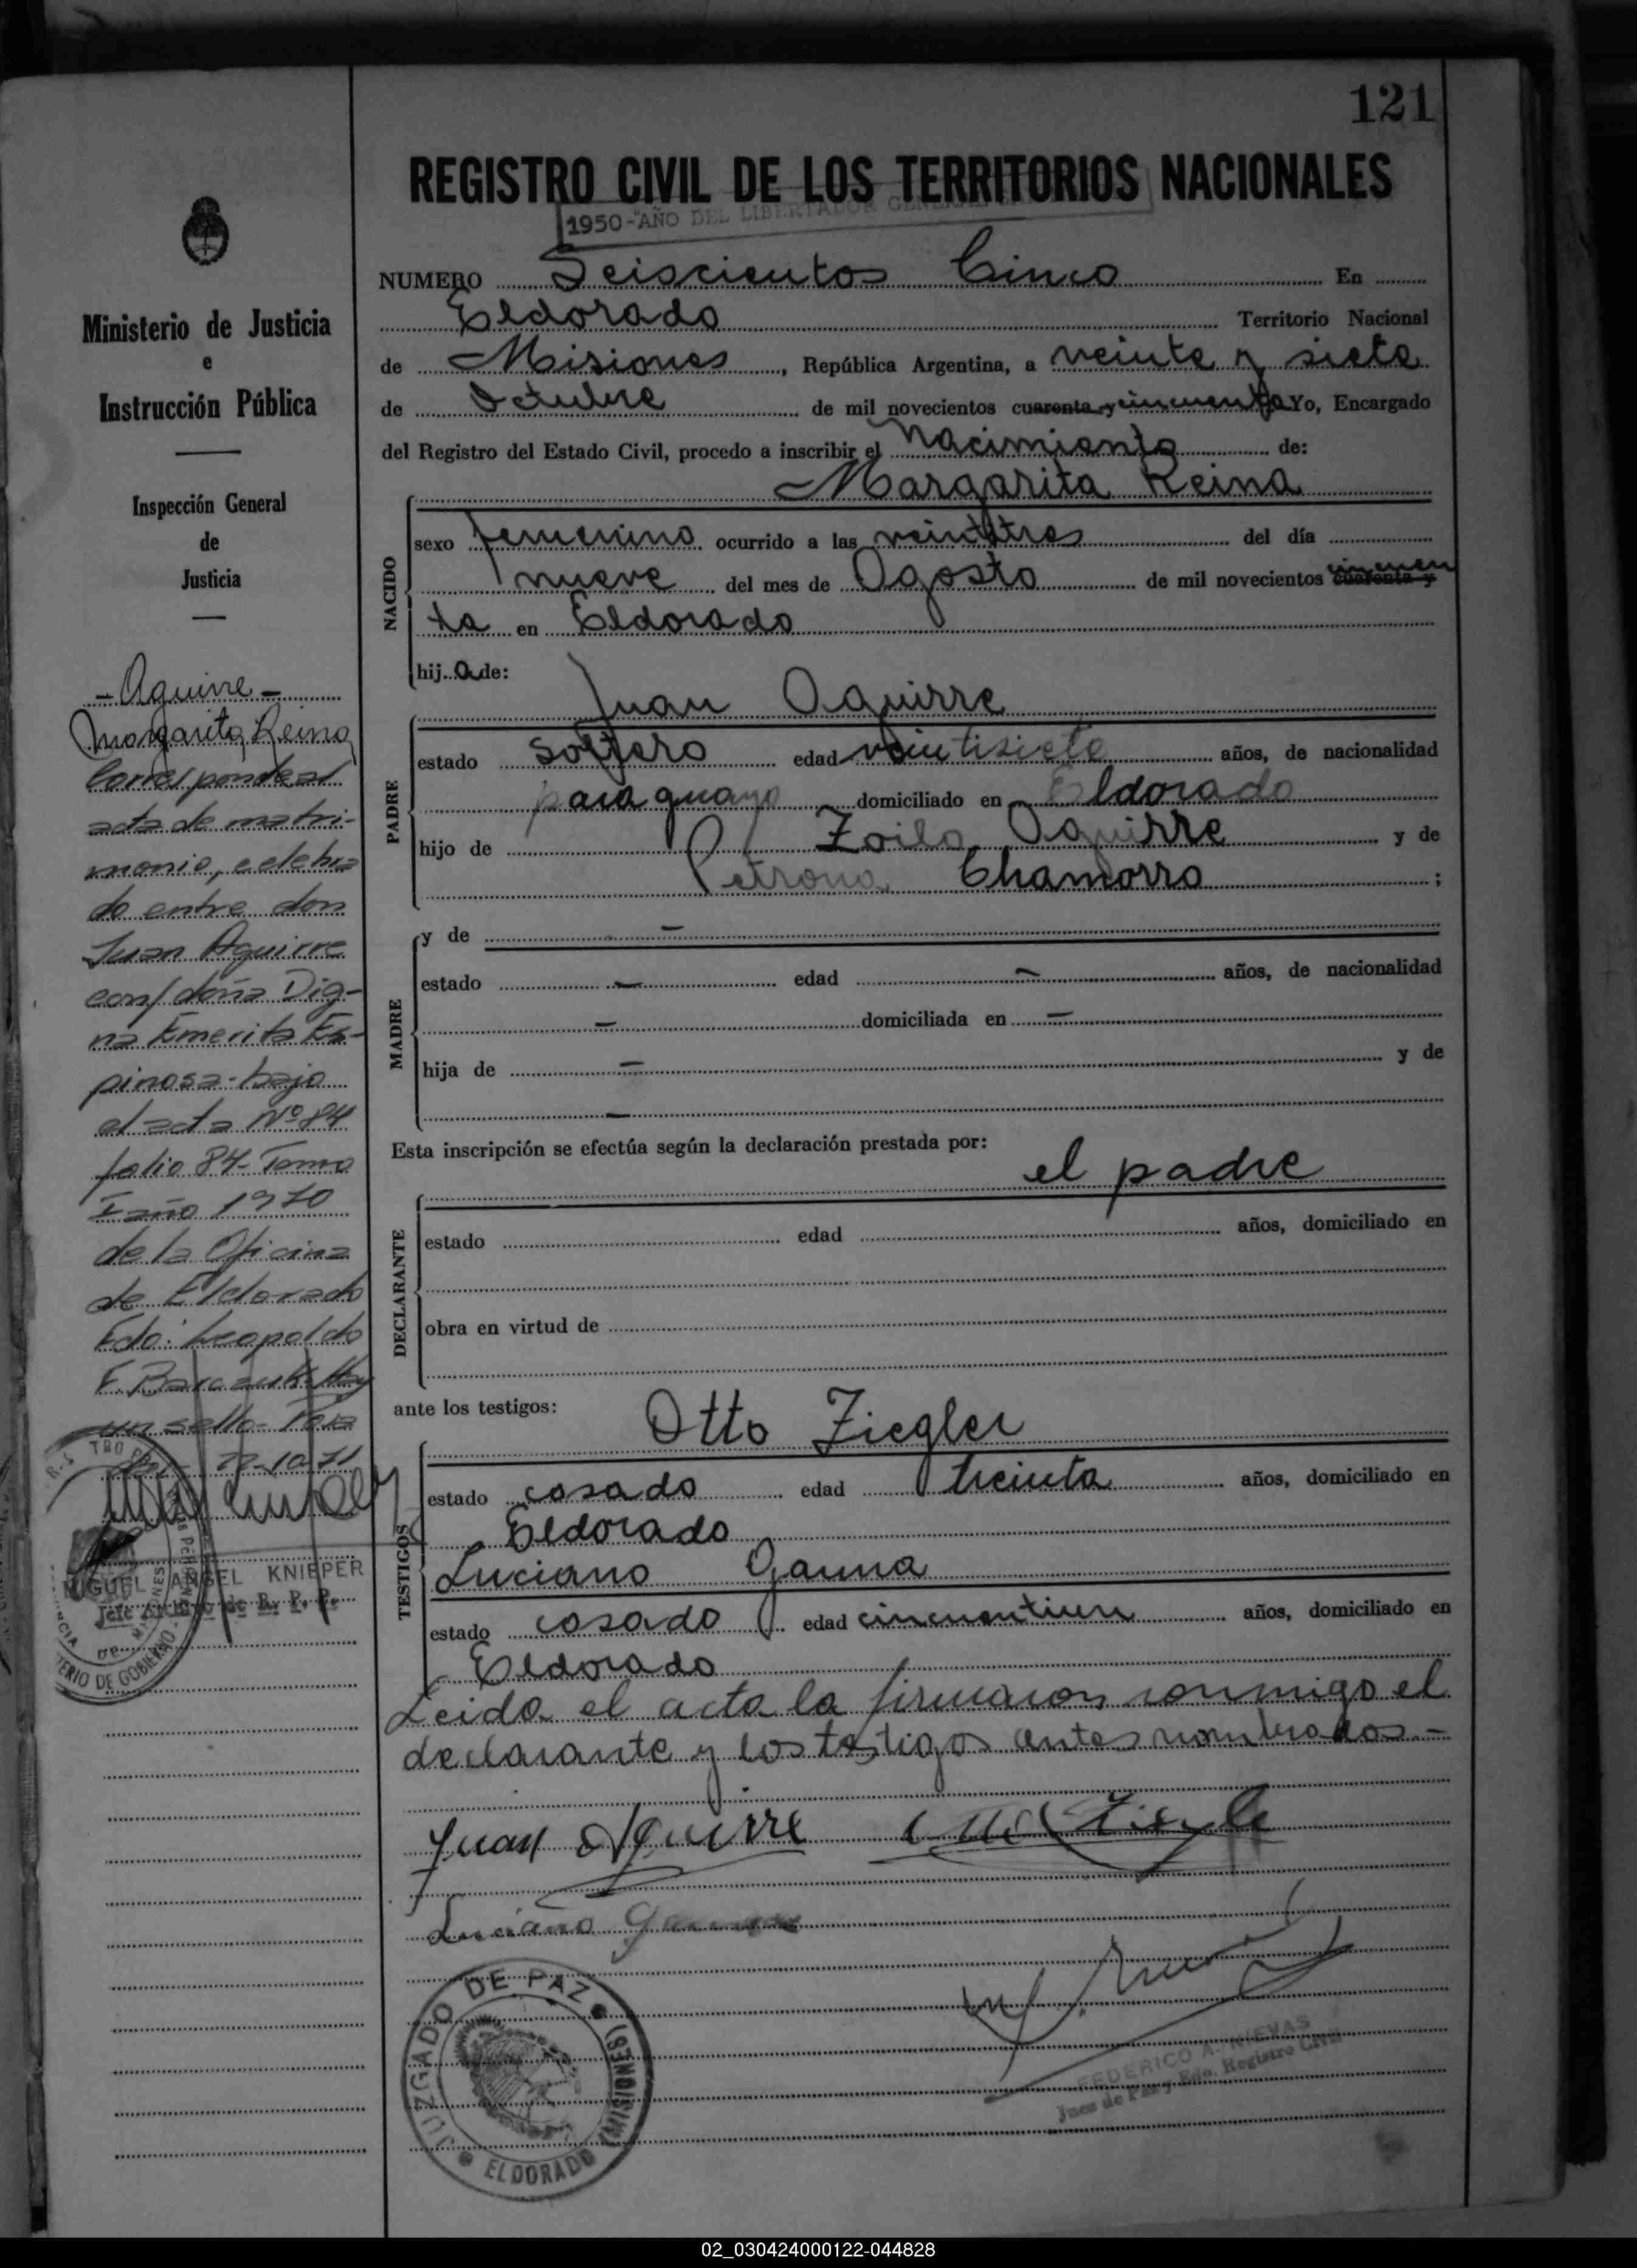 121
REGISTRO CIVIL DE LOS TERRITORIOS NACIONALES
1950-"AÑO DEL LIBERTADOR GENERAL
Ministerio de Justicia
e
Instrucción Pública
Inspección General
de
Justicia
- Aguirre -
Margarita Reina
Corresponde al
acta de matri-
monio, celebra
do entre don
Juan Aguirre
con/ doña Dig-
na Emerita Es-
pinosa - bajo
el acta Nº 84
folio 84 - Tomo
I año 1970
de la Oficina
de Eldorado
Fdo: Leopoldo
F.
un sello -
22-10-71
MIGUEL ANGEL KNIEPER
Jefe Archivo de R. P. P.
NUMERO Seiscientos Cinco En
Eldorado Territorio Nacional
de Misiones, República Argentina, a veinte y siete
de Octubre de mil novecientos cuarenta y cincuenta Yo, Encargado
del Registro del Estado Civil, procedo a inscribir el Nacimiento de:
Margarita Reina
NACIDO
sexo femenino ocurrido a las veintitres del día
nueve del mes de Agosto de mil novecientos cuarenta y cincuen
ta en Eldorado
hij a de:
Juan Aguirre
PADRE
estado soltero edad veintisiete años, de nacionalidad
paraguayo domiciliado en Eldorado
hijo de Zoilo Aguirre y de
Petrona Chamorro ;
MADRE
y de -
estado - edad - años, de nacionalidad
- domiciliada en -
hija de - y de
-
Esta inscripción se efectúa según la declaración prestada por:
el padre
DECLARANTE
estado edad años, domiciliado en
obra en virtud de
ante los testigos:
Otto Ziegler
TESTIGOS
estado casado edad treinta años, domiciliado en
Eldorado
Luciano Gauna
estado casado edad cincuentiun años, domiciliado en
Eldorado
Leida el acta la firmaron conmigo el
declarante y los testigos antes nombrados.-
Juan Aguirre Otto Ziegler
Luciano Gauna
JUZGADO DE PAZ
(MISIONES)
ELDORADO
FEDERICO A. NIEVAS
Juez de Paz y Edo. Registro Civil
02_030424000122-044828